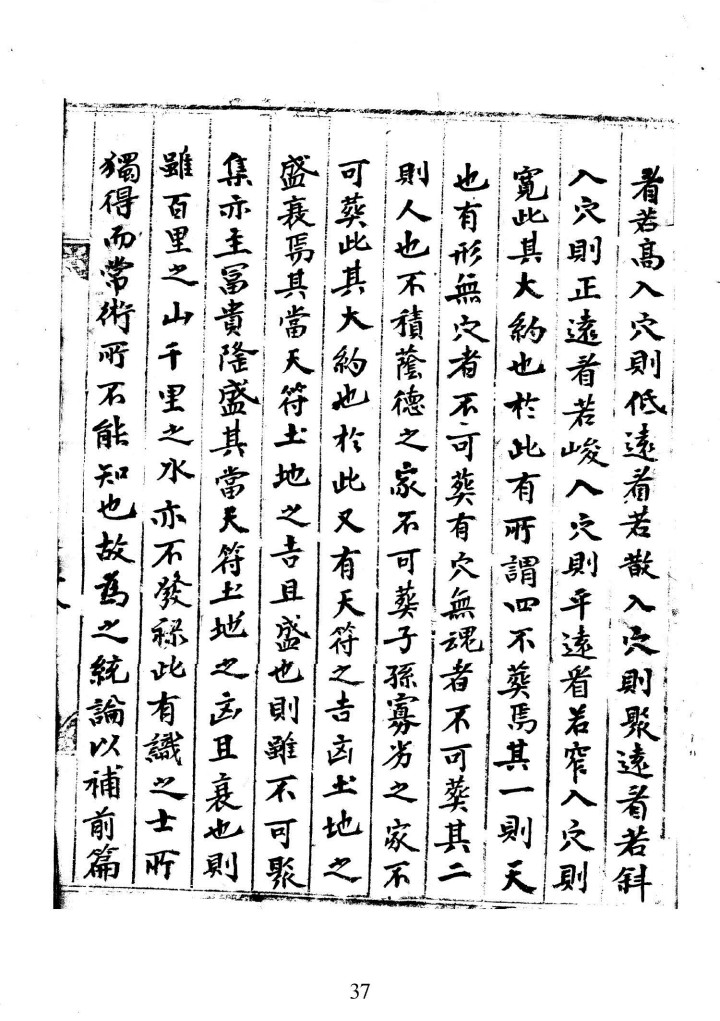 看若高入穴則低遠看若散入穴則聚遠看若斜
入穴則正遠看若峻入穴則平遠看若窄入穴則
寬此其大約也於此有所謂四不葬焉其一則天
也有形無穴者不可葬有穴無魂者不可葬其二
則人也不積蔭德之家不可葬子孫寡劣之家不
可葬此其大約也於此又有天符之吉凶土地之
盛衰焉其當天符土地之吉且盛也則雖不可聚
集亦主冨貴隆盛其當天符土地之凶且衰也則
雖百里之山千里之水亦不發祿此有識之士所
獨得而常術所不能知也故為之統論以補前篇
37